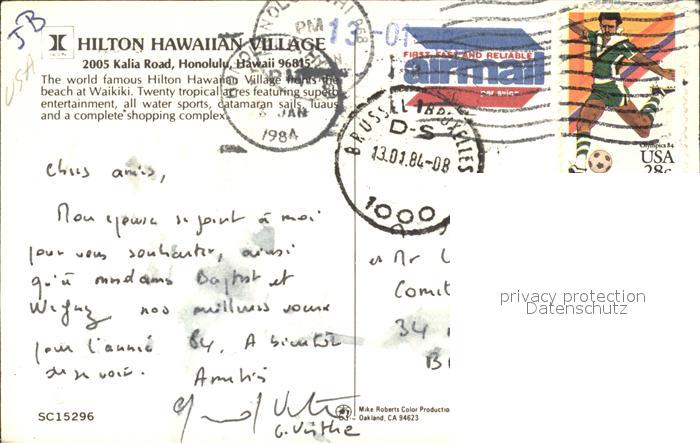 JB
USA
HILTON HAWAIIAN VILLAGE
2005 Kalia Road, Honolulu, Hawaii 96815
The world famous Hilton Hawaiian Village fronts the
beach at Waikiki. Twenty tropical acres featuring superb
entertainment, all water sports, catamaran sails, luaus
and a complete shopping complex.
PM
JAN
1984
FIRST, FAST AND RELIABLE
airmail
par avion
Olympics 84
USA
28c
BRUSSEL BRUXELLES
D-S
13.01.84-08
1000
Chers amis,
Mon épouse se joint à moi
pour vous souhaiter, ainsi
qu'à mesdames Baptist et
nos meilleurs voeux
pour l'année 84. A bientôt
de se voir.
Amitiés
et Mr
Comit
34
B
privacy protection
Datenschutz
SC15296
Mike Roberts Color Productio
Oakland, CA 94623